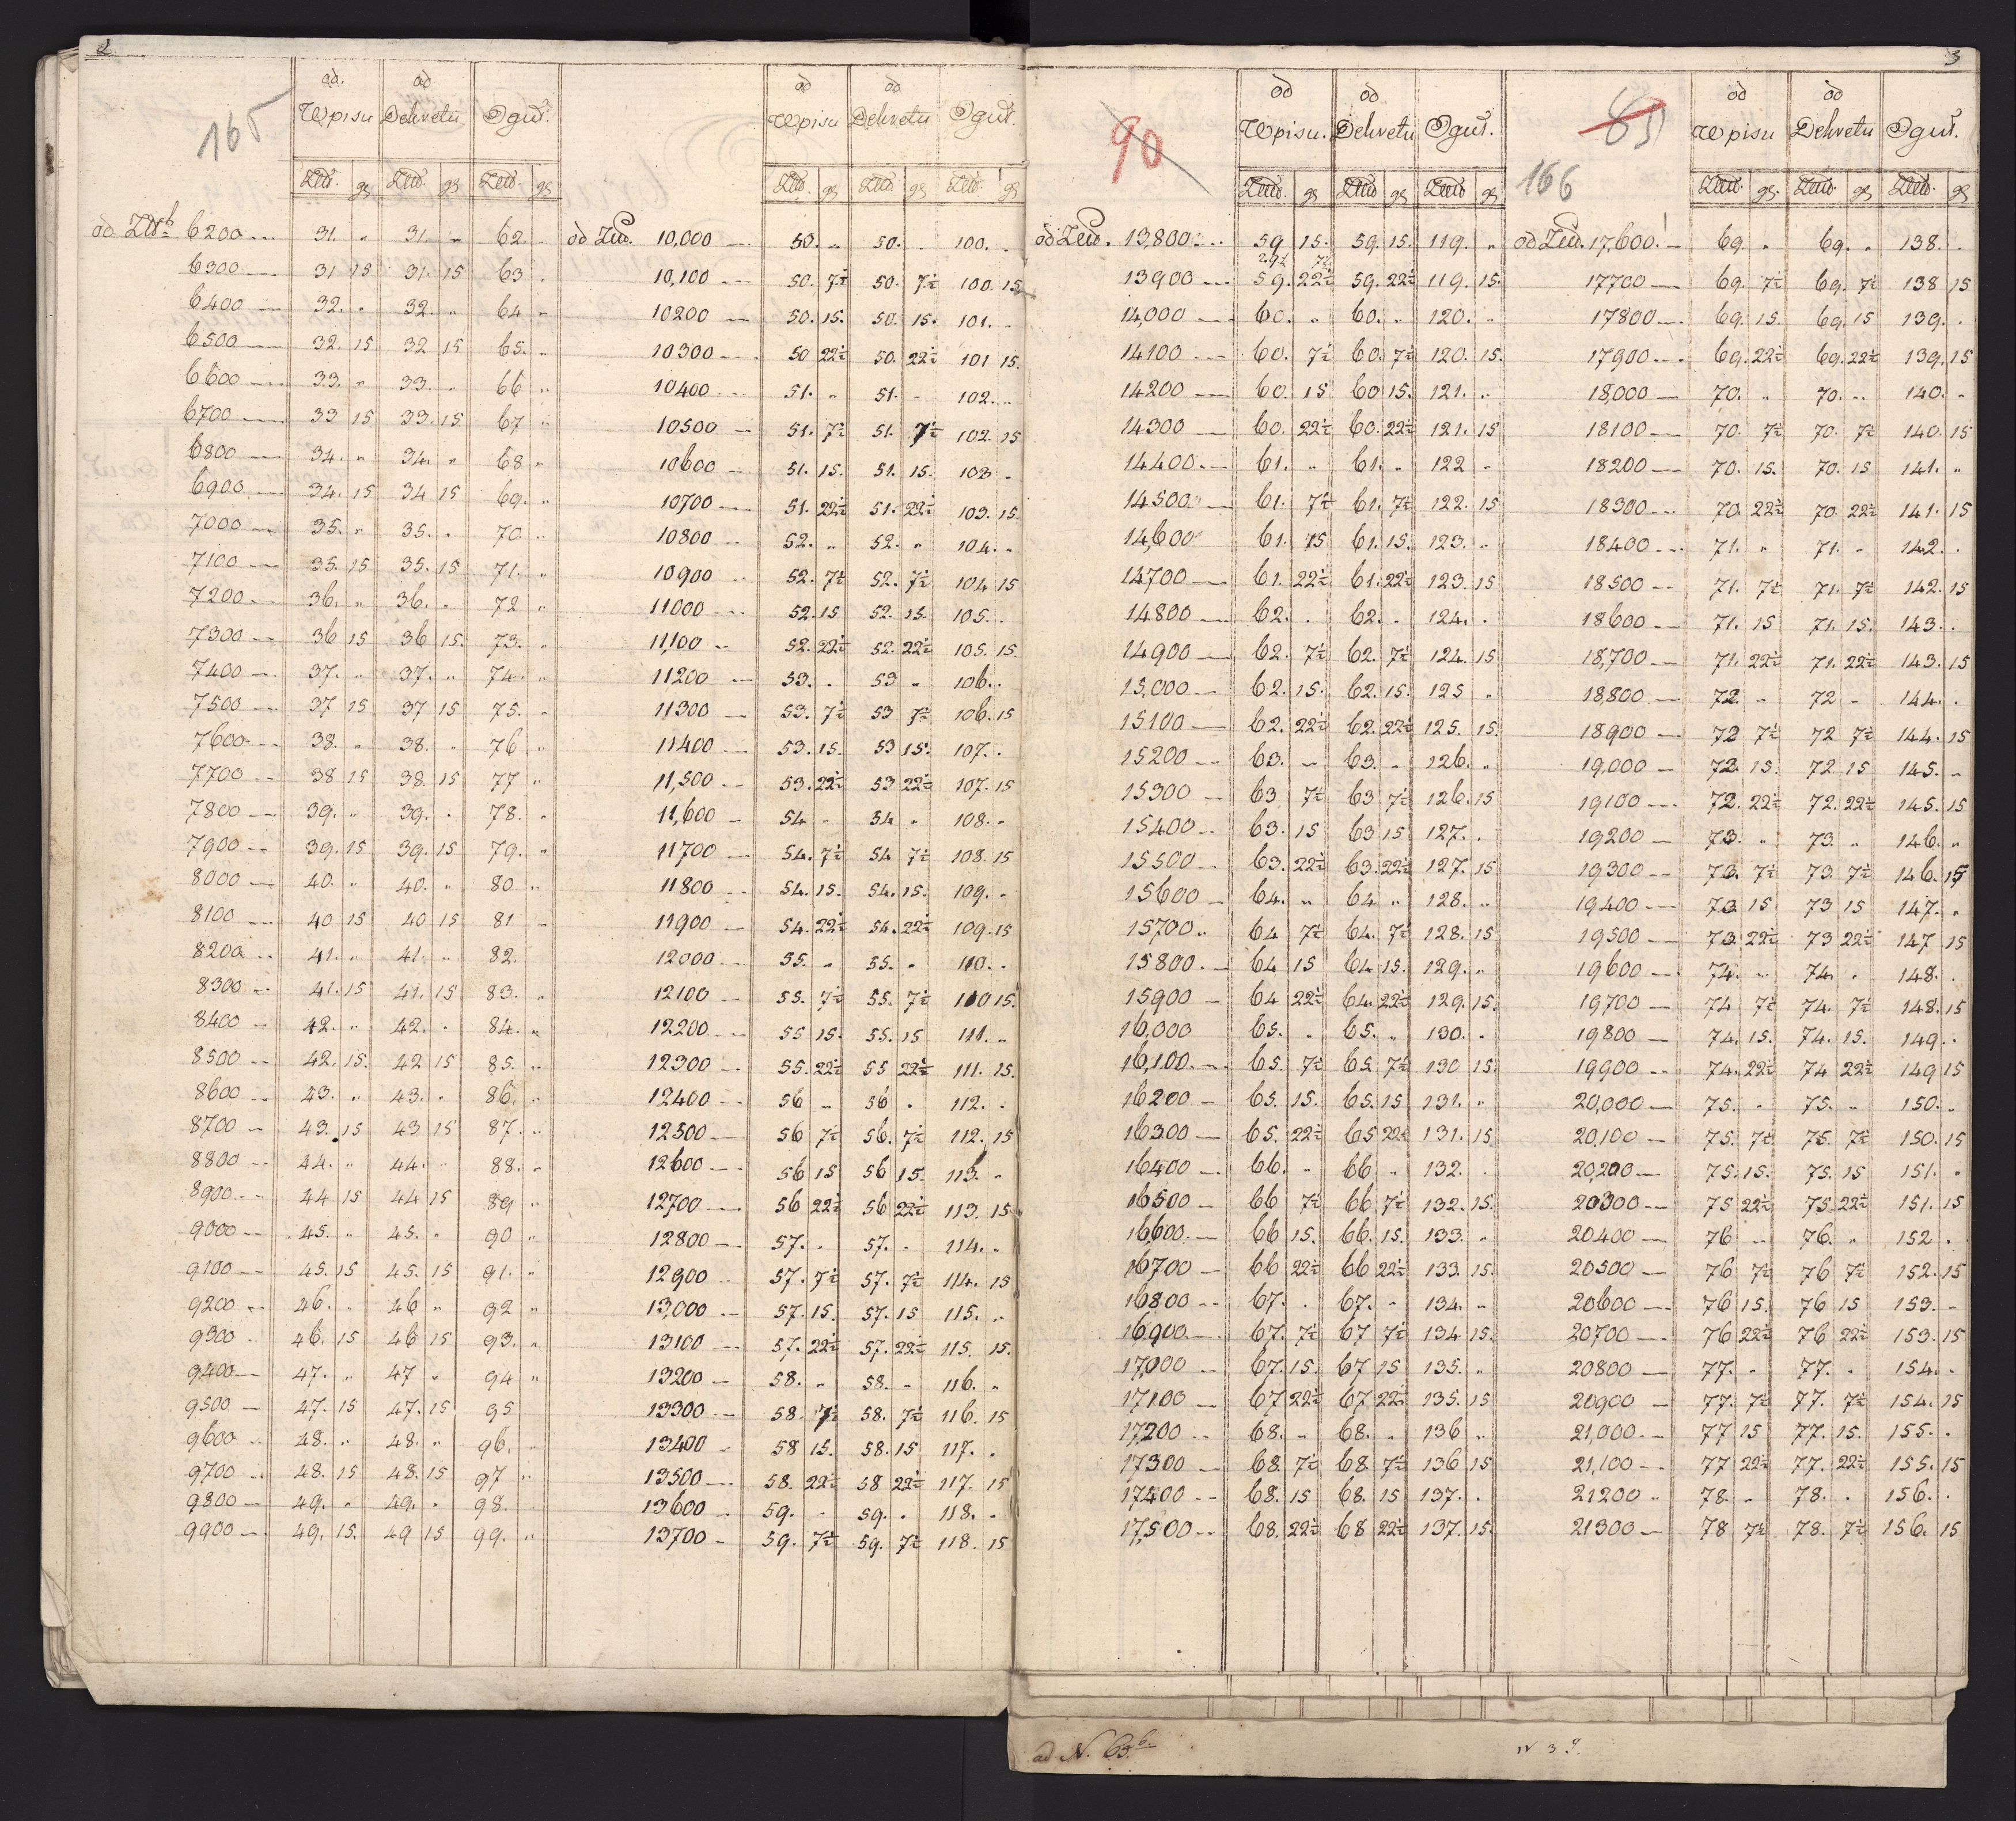 2
165
od od
Wpisu Dekretu Oguł.
Złł. gs Złł. gs Złł. gs
od Złł. 6200 — 31. " 31. " 62. "
6300 — 31 15 31. 15 63 .
6400 — 32. " 32. " 64 "
6500 — 32. 15 32 15 65. "
6600 — 33. " 33. " 66 "
6700 — 33 15 33. 15 67 "
6800 — 34. " 34. " 68 "
6900 — 34. 15 34 15 69. "
7000 — 35. " 35. " 70 "
7100 — 35. 15 35. 15 71. "
7200 — 36. " 36. " 72 "
7300 — 36 15 36 15. 73. "
7400 — 37. " 37. " 74. "
7500 — 37 15 37 15 75. "
7600 — 38. " 38. " 76 "
7700 — 38 15 38. 15 77 "
7800 — 39. " 39. " 78. "
7900 — 39. 15 39. 15 79. "
8000 — 40. " 40. " 80 "
8100 — 40 15 40 15 81 "
8200 — 41. " 41. " 82.
8300 — 41. 15 41. 15 83. "
8400 — 42. " 42. " 84. "
8500 — 42. 15. 42 15 85. "
8600 — 43. " 43. " 86. "
8700 — 43. 15 43 15 87. "
8800 — 44. " 44. " 88. "
8900 — 44 15 44 15 89 "
9000 — 45. " 45. " 90 "
9100 — 45. 15 45. 15 91. "
9200 — 46. " 46 " 92 "
9300 — 46. 15 46 15 93. "
9400 — 47. " 47 " 94 "
9500 — 47. 15 47. 15 95
9600 — 48. " 48. " 96. "
9700 — 48. 15 48. 15 97 "
9800 — 49. " 49. " 98.
9900 — 49. 15. 49 15 99. "
od od
Wpisu Dekretu Oguł.
Złł. gs Złł. gs Złł. gs
od Złł. 10,000 — 50. " 50. " 100. "
10,100 — 50. 7½ 50. 7½ 100. 15
10200 — 50. 15. 50. 15. 101. "
10300 — 50 22½ 50. 22½ 101 15.
10400 — 51. " 51. " 102. "
10500 — 51. 7½ 51. 7½ 102. 15
10600 — 51. 15. 51. 15. 103 "
10700 — 51. 22½ 51. 22½ 103. 15
10800 — 52. " 52. " 104. "
10900 — 52. 7½ 52. 7½ 104 15
11000 — 52. 15 52. 15. 105. .
11,100 — 52. 22½ 52. 22½ 105. 15.
11200 — 53. . 53 " 106. .
11300 — 53. 7½ 53 7½ 106. 15
11400 — 53. 15. 53 15. 107. .
11,500 — 53. 22½ 53 22½ 107. 15
11,600 — 54 " 54 " 108. "
11700 — 54. 7½ 54 7½ 108. 15
11800 — 54. 15. 54. 15. 109. "
11900 — 54. 22½ 54. 22½ 109. 15
12000 — 55. " 55. " 110. .
12100 — 55. 7½ 55. 7½ 110 15
12200 — 55 15. 55. 15 111. "
12300 — 55. 22½ 55 22½ 111. 15.
12400 — 56 " 56 . 112. .
12500 — 56 7½ 56. 7½ 112. 15
12600 — 56 15 56 15. 113. "
12700 — 56 22½ 56 22½ 113. 15
12800 — 57. . 57. . 114. "
12900 — 57. 7½ 57. 7½ 114. 15
13,000 — 57. 15. 57. 15 115. "
13100 — 57. 22½ 57. 22½ 115. 15.
13200 — 58. " 58. " 116. "
13300 — 58. 7½ 58. 7½ 116. 15
13400 — 58 15. 58. 15 117. .
13500 — 58. 22½ 58 22½ 117. 15
13600 — 59. " 59. . 118. "
13700 — 59. 7½ 59. 7½ 118. 15
90
od od
Wpisu. Dekretu Oguł.
Złł. gs Złł. gs Złł. gs
od Złł. 13,800 — 59 15. 59. 15. 119. "
13900 — 59. 22½ 59. 22½ 119. 15.
14,000 — 60. " 60. " 120. "
14100 — 60. 7½ 60. 7½ 120. 15.
14200 — 60. 15 60 15. 121. "
14300 — 60. 22½ 60. 22½ 121. 15
14400 — 61. " 61. " 122 "
14500 — 61. 7½ 61. 7½ 122. 15
14,600 61. 15 61. 15. 123. "
14700 — 61. 22½ 61. 22½ 123. 15
14800 — 62. . 62. . 124. .
14900 — 62. 7½ 62. 7½ 124. 15
15,000 — 62. 15. 62. 15. 125 "
15100 — 62. 22½ 62. 22½ 125. 15.
15200 — 63. " 63. " 126. "
15300 — 63 7½ 63 7½ 126. 15
15400 — 63. 15 63 15 127. .
15500 — 63. 22½ 63. 22½ 127. 15
15600 — 64. " 64 " 128. "
15700 " 64 7½ 64. 7½ 128. 15
15800 — 64 15 64 15. 129. "
15900 — 64 22½ 64. 22½ 129. 15.
16,000 65. . 65. " 130. "
16,100 — 65. 7½ 65. 7½ 130 15.
16200 — 65. 15. 65. 15 131. "
16300 — 65. 22½ 65 22½ 131. 15.
16400 — 66. " 66 " 132. .
16500 — 66 7½ 66 7½ 132. 15.
16,600 — 66 15. 66. 15. 133. "
16700 — 66 22½ 66 22½ 133. 15.
16800 — 67. . 67. " 134. "
16900 — 67. 7½ 67 7½ 134 15.
17,000 — 67. 15. 67 15 135. "
17100 — 67 22½ 67 22½ 135. 15
17,200 — 68. " 68. " 136 "
17300 — 68. 7½ 68. 7½ 136 15
17400 — 68. 15 68. 15 137. .
17,500 — 68. 22½ 68 22½ 137. 15.
3
166
od od
Wpisu Dekretu Oguł.
Złł. gs. Złł. gs Złł. gs
od Złł. 17,600. — 69. " 69. " 138. .
17700 — 69. 7½ 69. 7½ 138 15
17800 — 69. 15. 69. 15 139. .
17900 — 69. 22½ 69. 22½ 139. 15
18,000 — 70. " 70. " 140. "
18100 — 70. 7½ 70. 7½ 140. 15
18200 — 70. 15. 70. 15 141. "
18300 — 70. 22½ 70. 22½ 141. 15
18400 — 71. " 71. " 142. .
18500 — 71. 7½ 71. 7½ 142. 15
18600 — 71. 15 71. 15. 143. .
18,700 — 71. 22½ 71. 22½ 143. 15
18,800 — 72. " 72 " 144. .
18900 — 72 7½ 72 7½ 144. 15
19,000 — 72. 15. 72 15 145. "
19100 — 72. 22½ 72. 22½ 145. 15
19200 — 73. " 73. " 146. "
19300 — 73. 7½ 73. 7½ 146. 15
19400 — 73 15 73 15 147. "
19500 — 73. 22½ 73 22½ 147 15
19600 — 74. " 74. . 148. .
19700 — 74 7½ 74. 7½ 148. 15
19800 — 74. 15. 74. 15. 149. .
19900 — 74. 22½ 74 22½ 149 15
20,000 — 75. " 75. " 150. "
20,100 — 75. 7½ 75. 7½ 150. 15
20,200 — 75. 15. 75. 15 151. "
20300 — 75 22½ 75. 22½ 151. 15
20400 — 76 " 76. " 152 .
20500 — 76 7½ 76 7½ 152. 15
20600 — 76 15. 76 15 153. "
20700 — 76 22½ 76 22½ 153. 15
20800 — 77. " 77. . 154. .
20900 — 77. 7½ 77. 7½ 154. 15
21,000 — 77 15 77. 15. 155. .
21,100 — 77 22½ 77. 22½ 155. 15
21200 " 78. " 78. . 156. .
21300 — 78 7½ 78. 7½ 156. 15
ad N. 63 b.